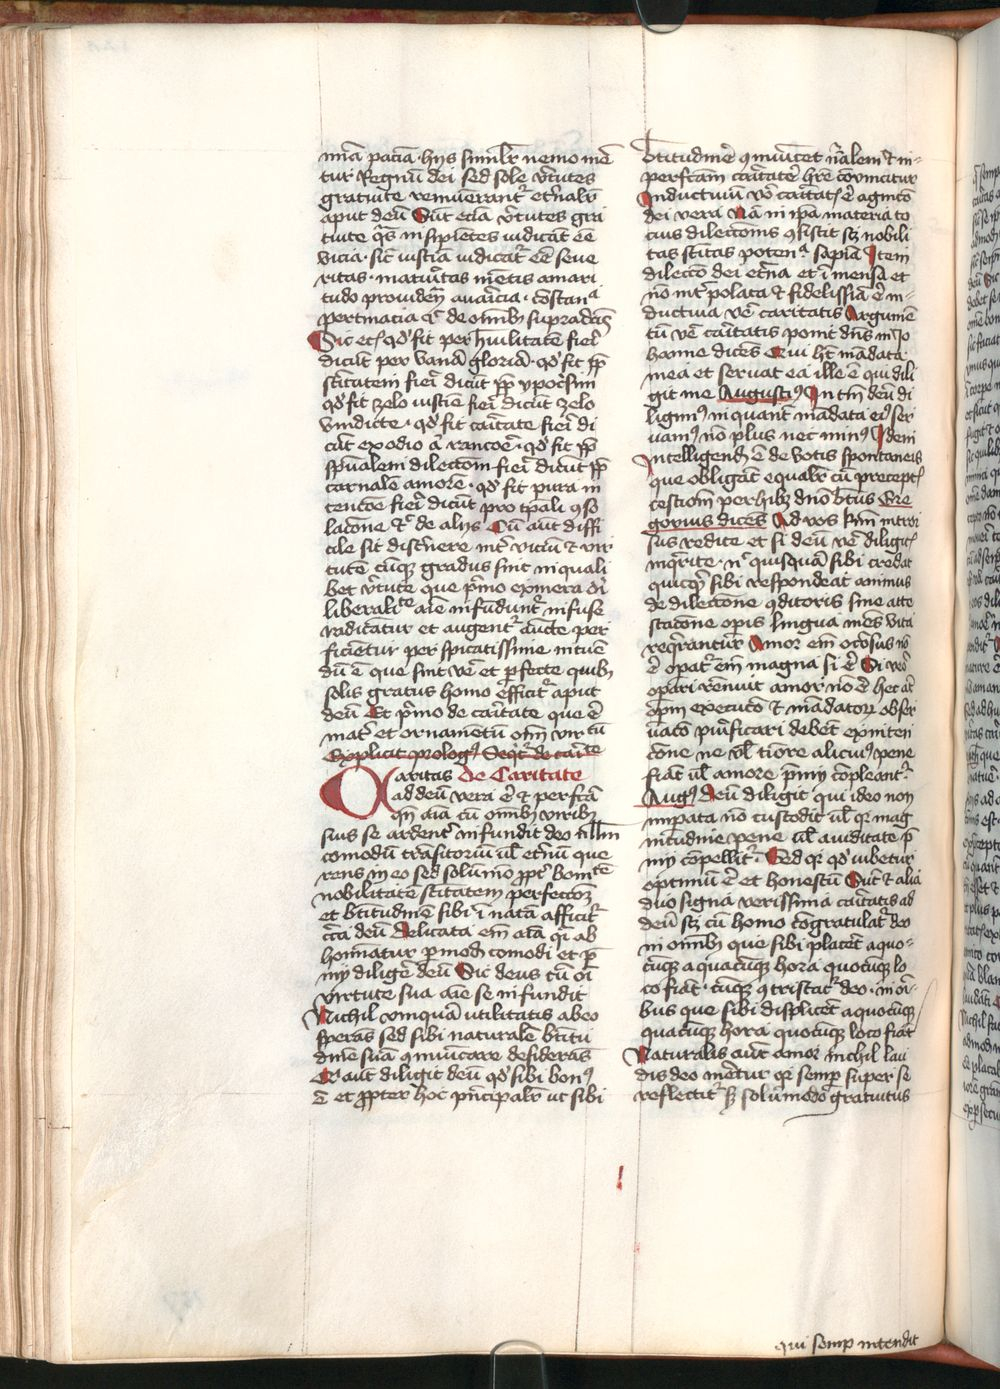 mīa pacia · hijs similr nemo īnē
tur Regnū dei sed sole v̄tutes
gratuite remunerant̄ et̄nalr
aput deū Sūt ecīa v̄tutes gra
tuite q̄s insipiētes iudicāt eē
vicia · sic iusticiā iudicāt eē seue
ritas · maturitas mētis amari
tudo prouidēn auaricia · cōstan
pertinacia ⁊ de om̄ib supradc̄is
Sic etc̄ qd̓ fit per hūilitate fieri
dicūt per vanā gloriā · qd̓ fit ꝓp
sc̄titatem fieri dicūt ꝓp ypoc̓sim
qd̓ fit zelo iusticie fieri dicūt zelo
vindicte · qd̓ fit caritate fieri di
cūt ex odio a̓ rancore · qd̓ fit ꝓp
sp̄ualem dilectiom fieri dicūt ꝓp
carnalē amorē · qd̓ fit pura in
tencōe fieri dicūt pro tp̄ali ꝯso
lacōne ⁊ de alijs Cū aut diffi
cile sit disc̓nere int̓ viciū ⁊ vir
tutē cūꝗ gradus sint in quali
bet v̓tute que p̓mo ex mera di
liberalitate aīe infundunt̓ infuse
radicantur et augent̓ aucte per
ficientur per spicatissime intuē
dū ē que sint v̄e et ꝑfecte quib
solis gratus homo efficit̓ aput
deū Et p̓mo de caritate que ē
mat̓ et ornamētū om̄ virtū
Explicit prolog⁹ Seqt̓ de car̄te
Caritas De Caritate
ad deū vera ē ⁊ perfc̄a
qn̄ aīa cū om̄ib virib
suis se ardent̓ infundit deo nullū
comodū trāsitoriū ul̓ et̓nū que
rens in eo sed solūmō ꝓpt̓ bonitē
nobilitatē sc̄titatem perfectōz
et b̄titudinē sibi īnatā afficit̓
circa deū Delicata em̄ aīa qi ab
hominatur ꝑ modū comodi et p̓
mij dilige̓ deū Sic deus tū oī
virtute sua aīe se infundit
Nichil vmquā utilitatis ab eo
sperās sed sibi naturalē b̄titu
dinē suā ꝯmūicare desiderās
Qi aut diligit deū qd̓ sibi bon⁹
ē et ꝓpter hoc p̓ncipalr ut sibi
b̄titudinē ꝯmūicet nālem ⁊ in
perfc̄am caritatē hr̄e convincitur
Inductiuū v̓o caritat̄ ē agnicō
dei vera Nā in ip̄a materia to
cius dilectionis ꝯsistit scz nobili
tas sc̄titas poten̄ sapīa Item
dilecc̄o dei et̓na et īmensa et
nō int̓polata ⁊ fidelissīa ē in
ductiua v̄e caritatis Argumē
tū v̄e caritatis ponit dn̄s in Jo
hanne dicēs Qui ht̄ mādata
mea et seruat ea ille ē qui dili
git me Augusti⁹ In tm̄ deū di
ligim⁹ in quantū mādata ei⁹ ser
uam⁹ nō plus nec min⁹ Idem
Intelligend̄ ē de votis spontaneis
que obligāt equalr cū precept̄
testiom perhibz dn̄o b̄tus Gre
gorius dicēs Ad vos kmī intror
sus redite et si deū v̄e diligit̄
inq̓rite · n̄ quisquā sibi credat
quicq̓ sibi respondeat animus
de dilectione ꝯditoris sine atte
stacōne opis lingua mēs vita
req̓rantur Amor em̄ ociosus nō
ē opat̓ em̄ magna si ē Si v̓o
operari rēnuit amor nō ē hec at̓
opm executō ⁊ mādatoꝝ obser
uatō purificari debēt ex inten
cōne ne ul̓ tiōre alicui⁹ pene
fiāt ul̓ amore p̓mij cōpleant̓
Aug⁹ Deū diligit qui ideo non
impata nō custodit ul̓ qi mag
nitudinē pene ul̓ auiditate p̓
mij cōpellit̓ Sed qi qd̓ iubetur
optimū ē et honestū Sūt ⁊ alia
duo signa verissima caritatis ad
deū scz cū homo congratulat̓ deo
in om̄ib que sibi placēt a quo
cūꝗ a quacūꝗ hora quocūꝗ lo
co fiāt · cūꝗ ꝯtristat̓ deo · in om̄i
bus que sibi displicēt a quocūꝗ
quacūꝗ hora quocūꝗ loco fiāt
Naturalis aut amor nichil lau
dis deo inētur qi semp super se
reflectit̓ sz solūmodo gratuitus
qui semp intendit